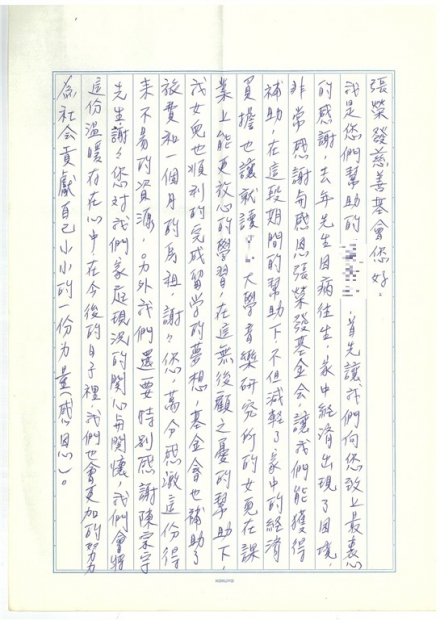 張榮發慈善基金會您好。
我是您們幫助的 首先讓我們向您致上最衷心
的感謝,去年先生因病往生,家中經濟出現了困境,
非常感謝與感恩張榮發基金會,讓我們能獲得
補助,在這段期間的幫助下,不但減輕了家中的經濟
負擔也讓就讀 大學音樂研究所的女兒在課
業上能更放心的學習,在這無後顧之憂的幫助下,
我女兒也順利的完成留學的夢想,基金會也補助了
旅費和一個月的房租,謝謝您,萬分感激這份得
來不易的資源,另外我們還要特別感謝陳宗宇
先生謝謝您對我們家庭現況的關心與關懷,我們會將
這份溫暖存在心中,在今後的日子裡我們也會更加的努力
為社會貢獻自己小小的一份力量(感恩)。
KOKUYO